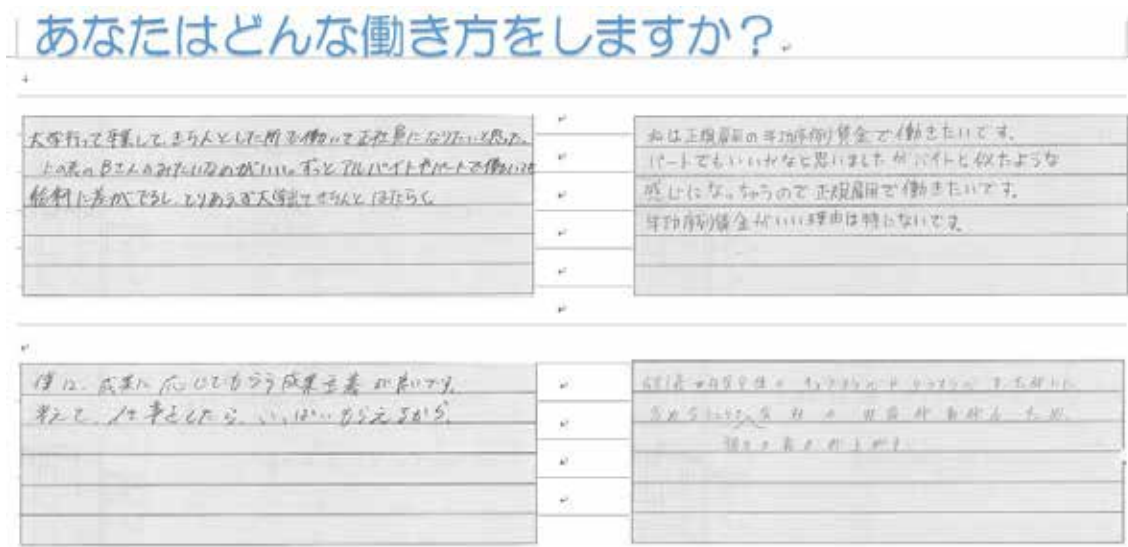 あなたはどんな働き方をしますか？
大学行って卒業して、きちんとした所で働いて正社員になりたいと思った。
上の表のBさんのみたいなのがいい。ずっとアルバイトやパートで働いても
給料に差がでるし、とりあえず大学出てきちんとはたらく
私は正規雇用の年功序列賃金で働きたいです。
パートでもいいかなと思いましたがバイトと似たような
感じになっちゃうので正規雇用で働きたいです。
年功序列賃金がいい理由は特にないです。
僕は、成果に応じてもらう成果主義が良いです。
考えて、仕事をしたら、いっぱいもらえるから。